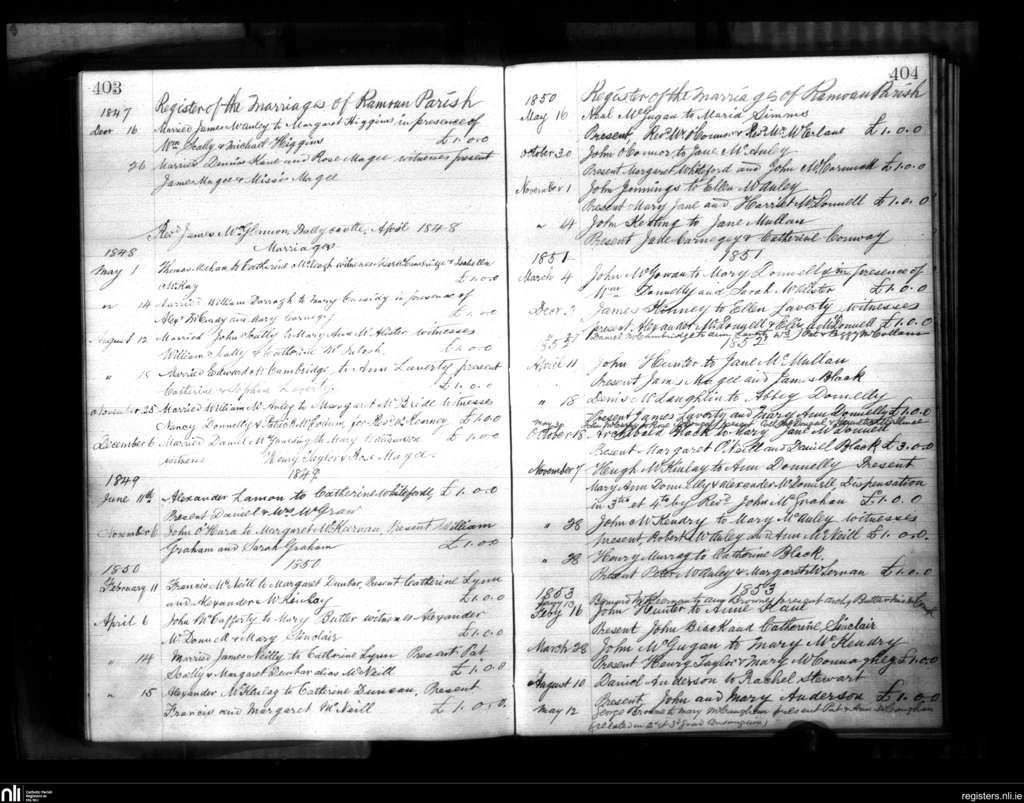 403
Register of the Marriages of Ramoan Parish
1847
Decr 16 Married James McAuley to Margaret Higgins in presence of
Wm Scally & Michall Higgins £1.0.0
26 Married Daniel Kane and Rose Magee witnesses present
James Magee & Misses Magee
Revd James McGlennon, Ballycastle, April 1848
Marriages
1848
May 1 Thomas Mehan to Catherine McVeagh witnesses & Isabella
McKay £1.0.0
" 14 Married William Darragh to Mary Cassidy in presence of
Alexr McCurdy and Mary Carnegey £1.0.0
August 12 Married John Scully to Mary Ann McAlister witnesses
William Scally & Catherine McIntosh. £1.0.0
" Married Edward McCambridge, to Ann Laverty present
Catherine & Sophia Laverty £1.0.0
November 25 Married William McAuley to Margaret McBride Witnesses
Nancy Donnelly & Patrick McFadum, for Revd Kenney £1.0.0
December 6 Married Daniel to Mary
witness Henry Taylor & Rose Magee. £1.0.0
1849
1849
June 11th Alexander Lamon to Catherine Whiteford, £1.0.0
Present Daniel & Mrs McGraw
November 6 John O'Hara to Margaret McKiernan, Present William
Graham and Sarah Graham £1.0.0
1850
1850
February 11 Francis McNeill to Margaret Dunbar, Present Catherine Lynn
and Alexander McKinlay £1.0.0
April 6 John McCafferty to Mary Butler witnesses Alexander
McDonnell & Mary Sinclair £1.0.0
" 14 Married James Neilly to Catherine Lynn Present Pat
Scally & Margaret Dunbar alias McNeill £1.0.0
" 15 Alexander McKinlay to Catherine Duncan, Present
Francis and Margaret McNeill £1.0.0
404
Register of the Marriages of Ramoan Parish
1850
May 16 Neal McGugan to Maria Simms
Present Revd Wm O'Connor & Revd Mr McErlane £1.0.0
October 30 John O'Connor to Jane McAuley
Present Margaret Whiteford and John McCormick £1.0.0
November 1 John Jennings to Ellen McAuley
Present Mary Jane and Harriet McDonnell £1.0.0
" 4 John Keating to Jane Mullan
Present Jane Carnegey & Catherine Conway
1851
1851
March 4 John McGowan to Mary Donnelly in presence of
Wm Donnelly and Sarah McAlister £1.0.0
Decr James Kenney to Ellen Laverty witnesses
present, Alexander McDonnell & Eliz McDonnell £1.0.0
Daniel McCambridge to Ann Pat & Peggy McCollum
1852
April 11 John Hunter to Jane McMullan
Present James Magee and James Black
" 18 Denis McLaughlin to Abbey Donnelly
Present James Laverty and Mary Ann Donnelly £1.0.0
October 18 Archibald Black to Mary Jane McDonnell
Present Margaret O'Neill and Daniel Black £3.0.0
November 7 Hugh McKinlay to Ann Donnelly Present
Mary Ann Donnelly & Alexander McDonnell, Dispensation
in 3rd et 4th by Revd John McGrahan £1.0.0
" 28 John McKendry to Mary McAuley witnesses
present, Robert McAuley and Ann McNeill £1.0.0.
" 28 Henry Murray to Catherine Black.
Present Peter McAuley & Margaret McLernan £1.0.0
1853
1853
Feby 16 John Hunter to Anne Kane
Present John Black and Catherine Sinclair
March 28 John McGugan to Mary McKendry
Present Henry Taylor & Mary McConnaghey £1.0.0
August 10 Daniel Anderson to Rachel Stewart
Present, John and Mary Anderson £1.0.0
May 12 George Brown to Mary McCaughan present Pat & Ann McCaughan
(related in 2d et 3d grad)
nli
Catholic Parish
Registers at
the NLI
registers.nli.ie